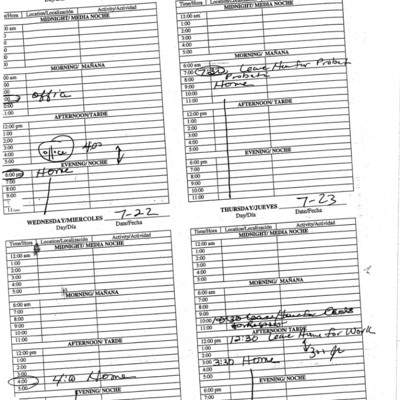 Day/Día
Time/Hora Location/Localización Activity/Actividad
MIDNIGHT/ MEDIA NOCHE
12:00 am
1:00
2:00
3:00
4:00
5:00
MORNING/ MAÑANA
6:00 am
7:00
8:00
9:00 office
10:00
11:00
AFTERNOON/TARDE
12:00 pm
1:00
2:00
3:00 office 4:00
4:00
5:00
EVENING/ NOCHE
6:00 pm Home
7:00
8:00
9:00
10:00
11:00
MIDNIGHT/ MEDIA NOCHE
12:00 am
1:00
2:00
3:00
4:00
5:00
MORNING/ MAÑANA
6:00 am
7:00 7:30 Leave Home for Probate
8:00 Probate
9:00 Home
10:00
11:00
AFTERNOON/TARDE
12:00 pm
1:00
2:00
3:00
4:00
5:00
EVENING/ NOCHE
6:00 pm
7:00
8:00
9:00
10:00
11:00
WEDNESDAY/MIERCOLES 7-22
Day/Día Date/Fecha
Time/Hora Location/Localización Activity/Actividad
MIDNIGHT/ MEDIA NOCHE
12:00 am
1:00
2:00
3:00
4:00
5:00
MORNING/ MAÑANA
6:00 am
7:00
8:00
9:00
10:00
11:00
AFTERNOON/TARDE
12:00 pm
1:00
2:00
3:00
4:00 4:00 Home
5:00
EVENING/ NOCHE
THURSDAY/JUEVES 7-23
Day/Día Date/Fecha
Time/Hora Location/Localización Activity/Actividad
MIDNIGHT/ MEDIA NOCHE
12:00 am
1:00
2:00
3:00
4:00
5:00
MORNING/ MAÑANA
6:00 am
7:00
8:00
9:00
10:00 10:30 Leave
11:00
AFTERNOON/TARDE
12:00 pm 12:30 Leave Home for Work
1:00
2:00
3:00 3:30 Home
4:00
5:00
EVENING/ NOCHE
6:00 pm